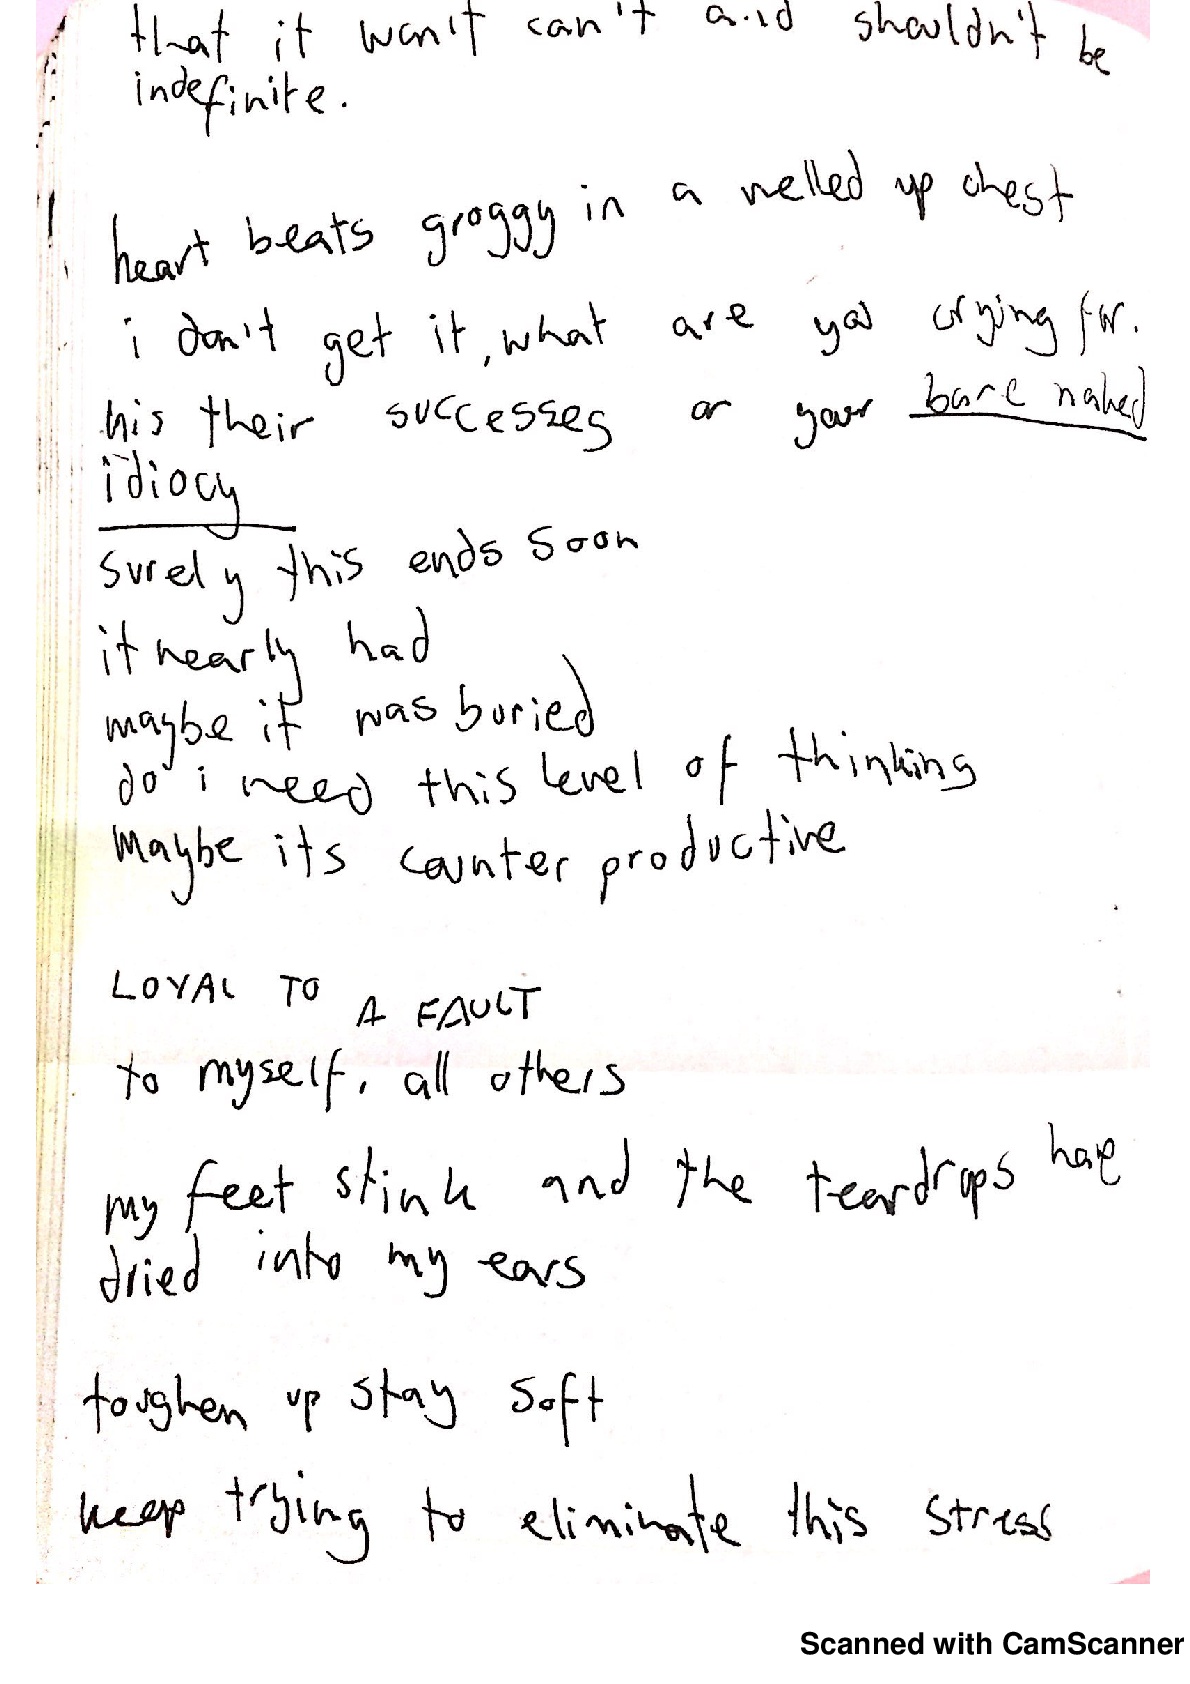 that it won't can't and shouldn't be
indefinite.
heart beats groggy in a welled up chest
i don't get it, what are you crying for.
his their successes or your bare naked
idiocy
surely this ends soon
it nearly had
maybe it was buried
do i need this level of thinking
Maybe its counter productive
LOYAL TO A FAULT
to myself, all others
my feet stink and the teardrops have
dried into my ears
toughen up stay soft
keep trying to eliminate this stress
Scanned with CamScanner